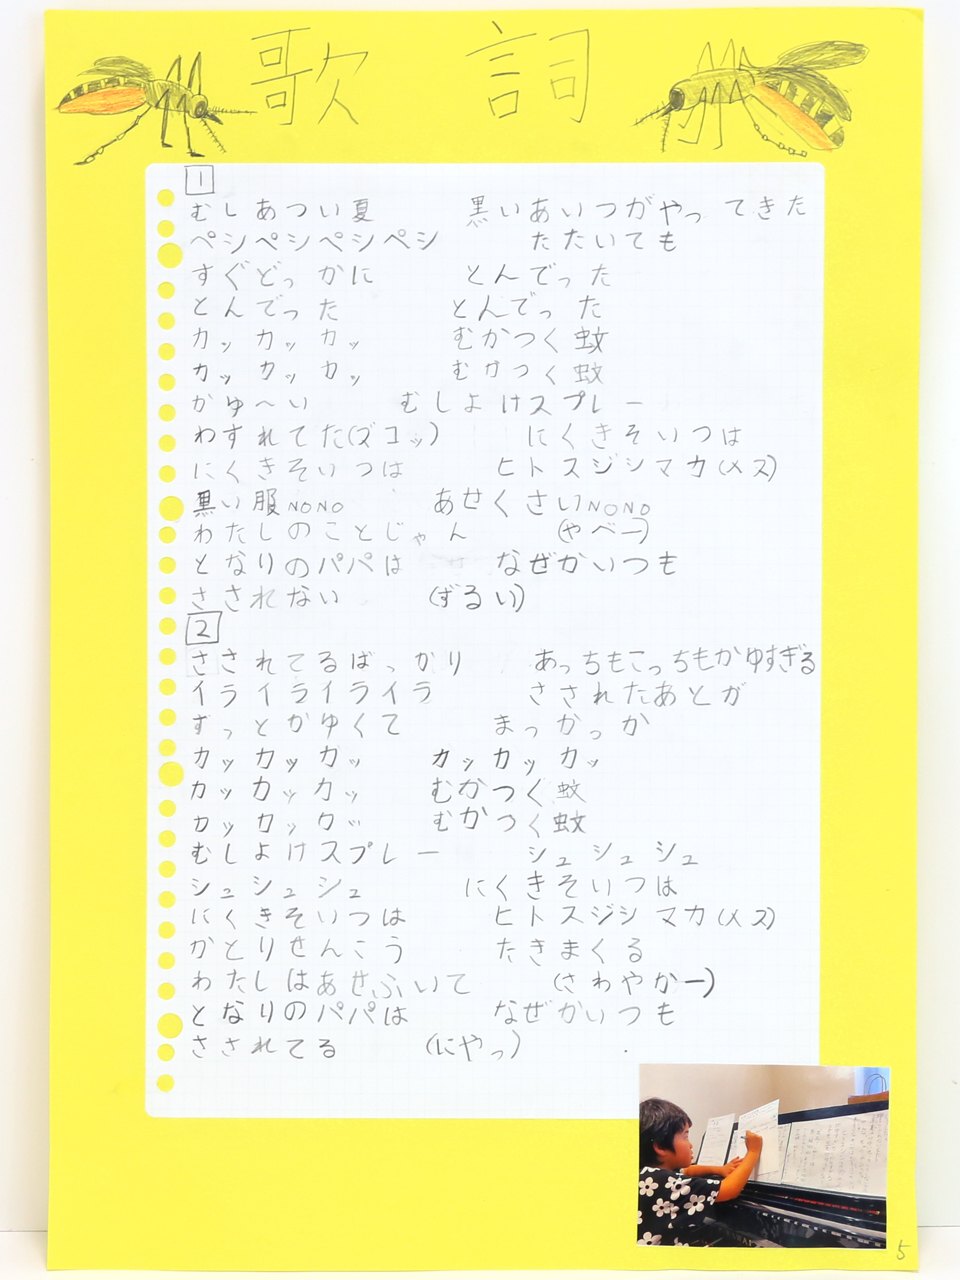 歌詞
1
むしあつい夏 黒いあいつがやってきた
ペシペシペシペシ たたいても
すぐどっかに とんでった
とんでった とんでった
カッカッカッ むかつく蚊
カッカッカッ むかつく蚊
かゆ〜い むしよけスプレー
わすれてた(ズコッ) にくきそいつは
にくきそいつは ヒトスジシマカ(メス)
黒い服NONO あせくさいNONO
わたしのことじゃん (やべー)
となりのパパは なぜかいつも
さされない (ずるい)
2
さされてるばっかり あっちもこっちもかゆすぎる
イライライライラ さされたあとが
ずっとかゆくて まっかっか
カッカッカッ カッカッカッ
カッカッカッ むかつく蚊
カッカッカッ むかつく蚊
むしよけスプレー シュシュシュ
シュシュシュ にくきそいつは
にくきそいつは ヒトスジシマカ(メス)
かとりせんこう たきまくる
わたしはあせふいて (さわやかー)
となりのパパは なぜかいつも
さされてる (にやっ)
5